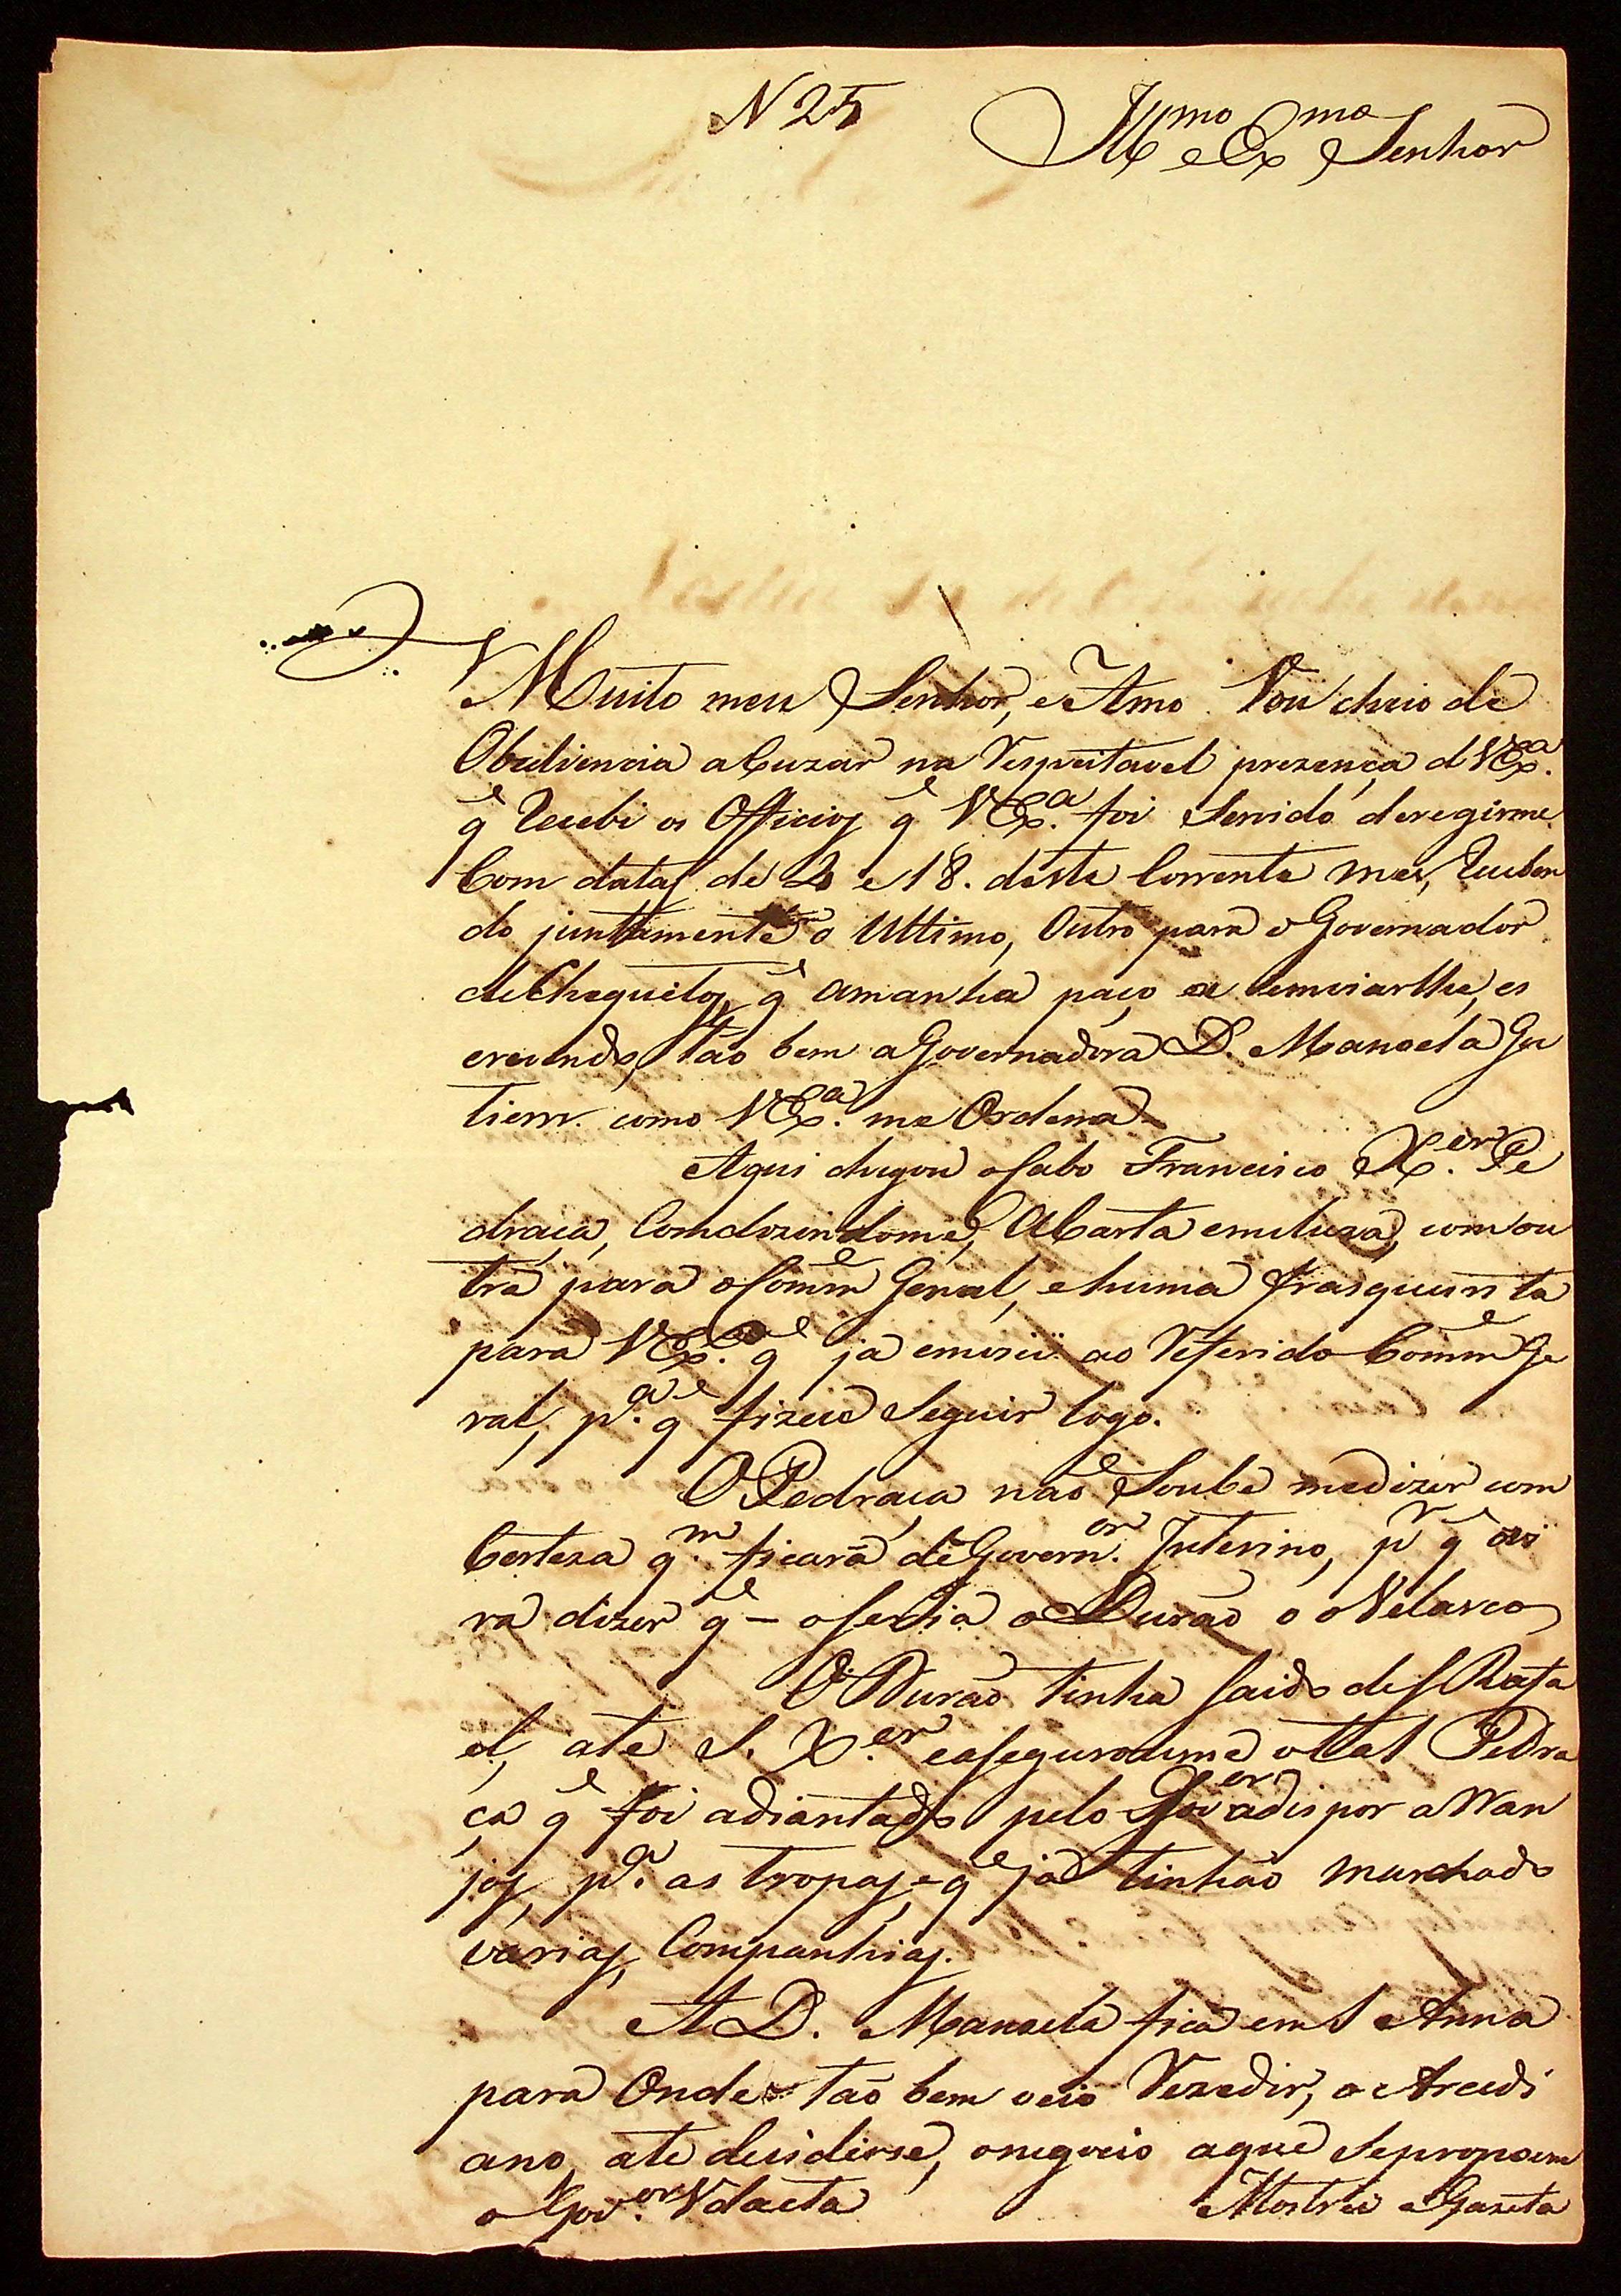 N 25
Illmo e Exmo Senhor
Muito meu Senhor, e Amo. Vou cheio de
Obediencia acuzar na respeitavel prezença d VExa.
q̃ recebi os Officios q̃ VExa. foi Servido deregirme
Com datas de 2 e 18. deste Corrente mez, receben
do junttamente o Ultimo, Outro para o Governador
de Chequitos, q̃ amanhã paço a remeiarlhe, es
crevendo, tão bem a Governadora D. Manoela Gu
tierr. como VExa. me Ordena
Aqui chegou o Cabo Francisco Xer. Pe
draça, Comdozindome, A Carta emcluza, com ou
tra para o Comme Geral, e huma frasqueirita
para VExa. q̃ ja emviei ao referido Comme Ge
ral, pa. q̃ fizece Seguir logo.
O Pedraça não Soube me dizer com
Certeza qm. ficará de Governor. Interino, pr q̃
dizer q̃ - o Seria o Durão o o Velasco
O Durão tinha Saido de S Rafa
el, ate S. Xer. easegurou me o tal Pedra
ça q̃ foi adiantado pelo Govor a dispor a Ran
jos, pa. as tropas, e q̃ já tinhão marchado
varias, Companhias.
A D. Manoela fica em S Anna
para Onde tão bem veio rezedir, o Arcedi
ano, ate decidirse, o negocio aque Sepropoem
o Govor.
Mostrei a Gazeta